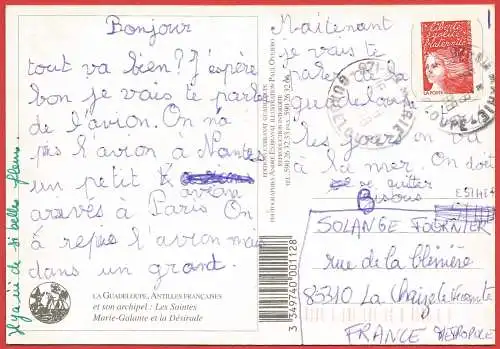 Bonjour
tout va bien? J'espère
bon je vais te parler
de l'avion. On n'a
pris l'avion a Nantes
un petit avion
arrivés à Paris On
à repis l'avion mais
dans un grand.
Il y a ici de si belles fleurs.
LA GUADELOUPE, ANTILLES FRANÇAISES
et son archipel : Les Saintes
Marie-Galante et la Désirade
PHOTOGRAPHIES ANDRÉ EXBRAYAT ILLUSTRATION PAUL
REPRODUCTION INTERDITE
3 549740 001128
Maintenant
je vais te
parler de la
guadeloupe
les jours on va
à la mer. On doit
se quitter
Bisous
liberté
égalité
fraternité
LA POSTE
SOLANGE FOURNIER
rue de la blénière
85310 La Chaize le Vicomte
FRANCE METROPOLE